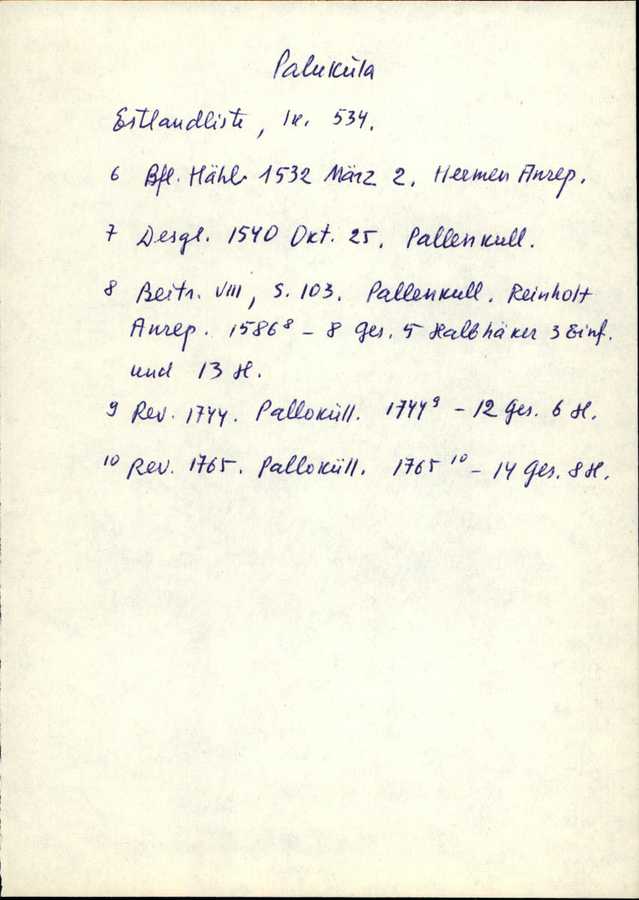 Paluküla
Estlandliste, Nr. 534.
6 Bfl. Hähl 1532 März 2. Hermen Anrep.
7 Desgl. 1540 Okt. 25. Pallenkull.
8 Beitr. VIII, S. 103. Pallenkull. Reinholt
Anrep. 1586⁸ – 8 Ges. 5 Halbhäker 3 Einf.
und 13 H.
9 Rev. 1744. Palloküll. 1744⁹ – 12 Ges. 6 H.
10 Rev. 1765. Palloküll. 1765¹⁰ – 14 Ges. 8 H.